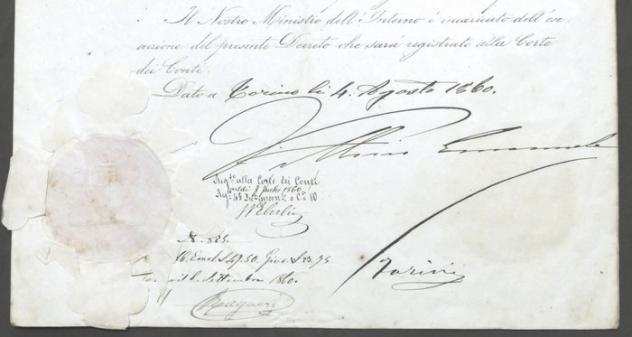 Il Nostro Ministro dell'Interno è incaricato dell'ese-
cuzione del presente Decreto che sarà registrato alla Corte
dei Conti.
Dato a Torino li 4. Agosto 1860.
Vittorio Emanuele
Reg.to alla Corte dei Conti
1860
Reg.o 10
N. 325.
16. Emol. £ 49.50. Giro £ 23.75
Settembre 1860.
Farini